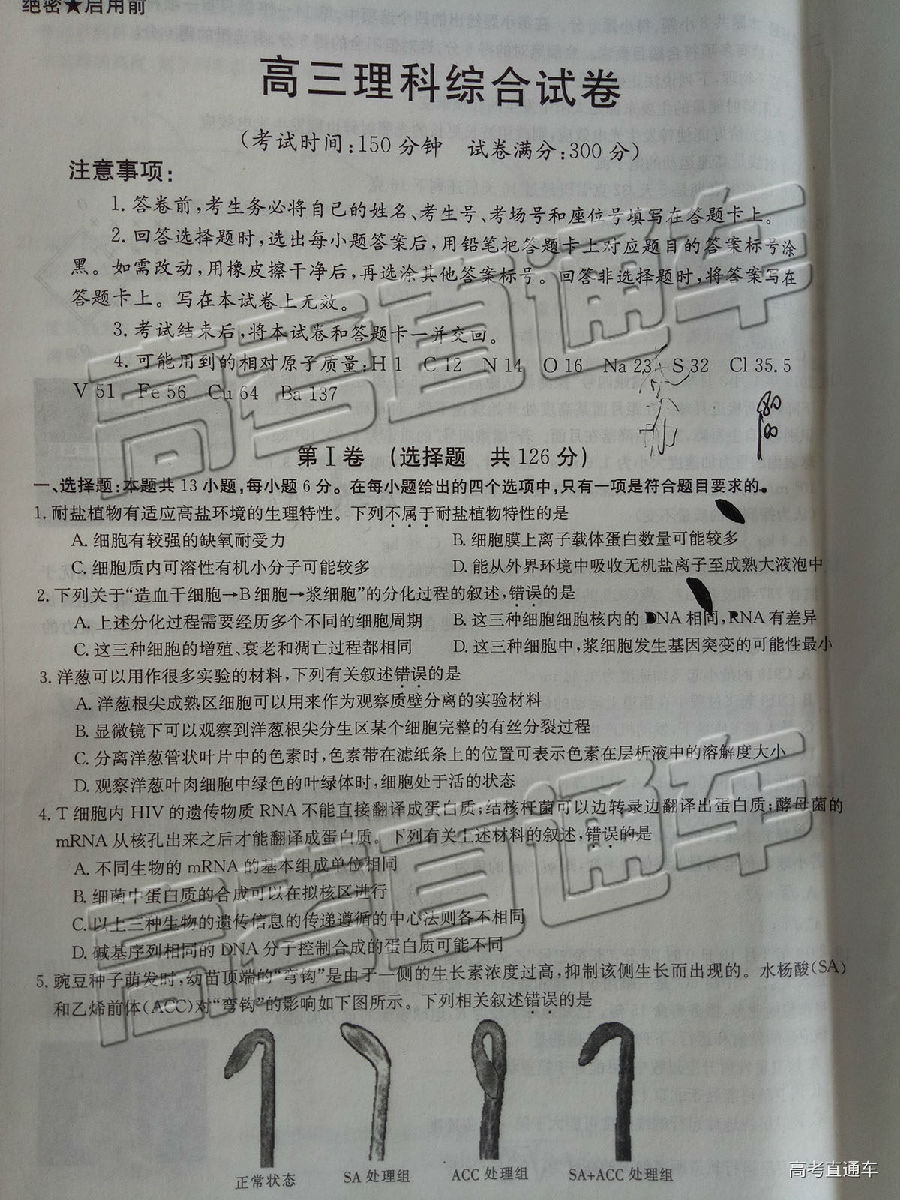 绝密★启用前
高三理科综合试卷
(考试时间:150分钟 试卷满分:300分)
注意事项:
1.答卷前,考生务必将自己的姓名、考生号、考场号和座位号填写在答题卡上。
2.回答选择题时,选出每小题答案后,用铅笔把答题卡上对应题目的答案标号涂
黑。如需改动,用橡皮擦干净后,再选涂其他答案标号。回答非选择题时,将答案写在
答题卡上。写在本试卷上无效。
3.考试结束后,将本试卷和答题卡一并交回。
4.可能用到的相对原子质量:H 1 C 12 N 14 O 16 Na 23 S 32 Cl 35.5
V 51 Fe 56 Cu 64 Ba 137
第Ⅰ卷 (选择题 共126分)
一、选择题:本题共13小题,每小题6分。在每小题给出的四个选项中,只有一项是符合题目要求的。
1.耐盐植物有适应高盐环境的生理特性。下列不属于耐盐植物特性的是
A.细胞有较强的缺氧耐受力 B.细胞膜上离子载体蛋白数量可能较多
C.细胞质内可溶性有机小分子可能较多 D.能从外界环境中吸收无机盐离子至成熟大液泡中
2.下列关于“造血干细胞→B细胞→浆细胞”的分化过程的叙述,错误的是
A.上述分化过程需要经历多个不同的细胞周期 B.这三种细胞细胞核内的DNA相同,RNA有差异
C.这三种细胞的增殖、衰老和凋亡过程都相同 D.这三种细胞中,浆细胞发生基因突变的可能性最小
3.洋葱可以用作很多实验的材料,下列有关叙述错误的是
A.洋葱根尖成熟区细胞可以用来作为观察质壁分离的实验材料
B.显微镜下可以观察到洋葱根尖分生区某个细胞完整的有丝分裂过程
C.分离洋葱管状叶片中的色素时,色素带在滤纸条上的位置可表示色素在层析液中的溶解度大小
D.观察洋葱叶肉细胞中绿色的叶绿体时,细胞处于活的状态
4.T细胞内HIV的遗传物质RNA不能直接翻译成蛋白质;结核杆菌可以边转录边翻译出蛋白质;酵母菌的
mRNA从核孔出来之后才能翻译成蛋白质。下列有关上述材料的叙述,错误的是
A.不同生物的mRNA的基本组成单位相同
B.细菌中蛋白质的合成可以在拟核区进行
C.以上三种生物的遗传信息的传递遵循的中心法则各不相同
D.碱基序列相同的DNA分子控制合成的蛋白质可能不同
5.豌豆种子萌发时,幼苗顶端的“弯钩”是由于一侧的生长素浓度过高,抑制该侧生长而出现的。水杨酸(SA)
和乙烯前体(ACC)对“弯钩”的影响如下图所示。下列相关叙述错误的是
正常状态 SA处理组 ACC处理组 SA+ACC处理组
高考直通车
高考直通车
高考直通车